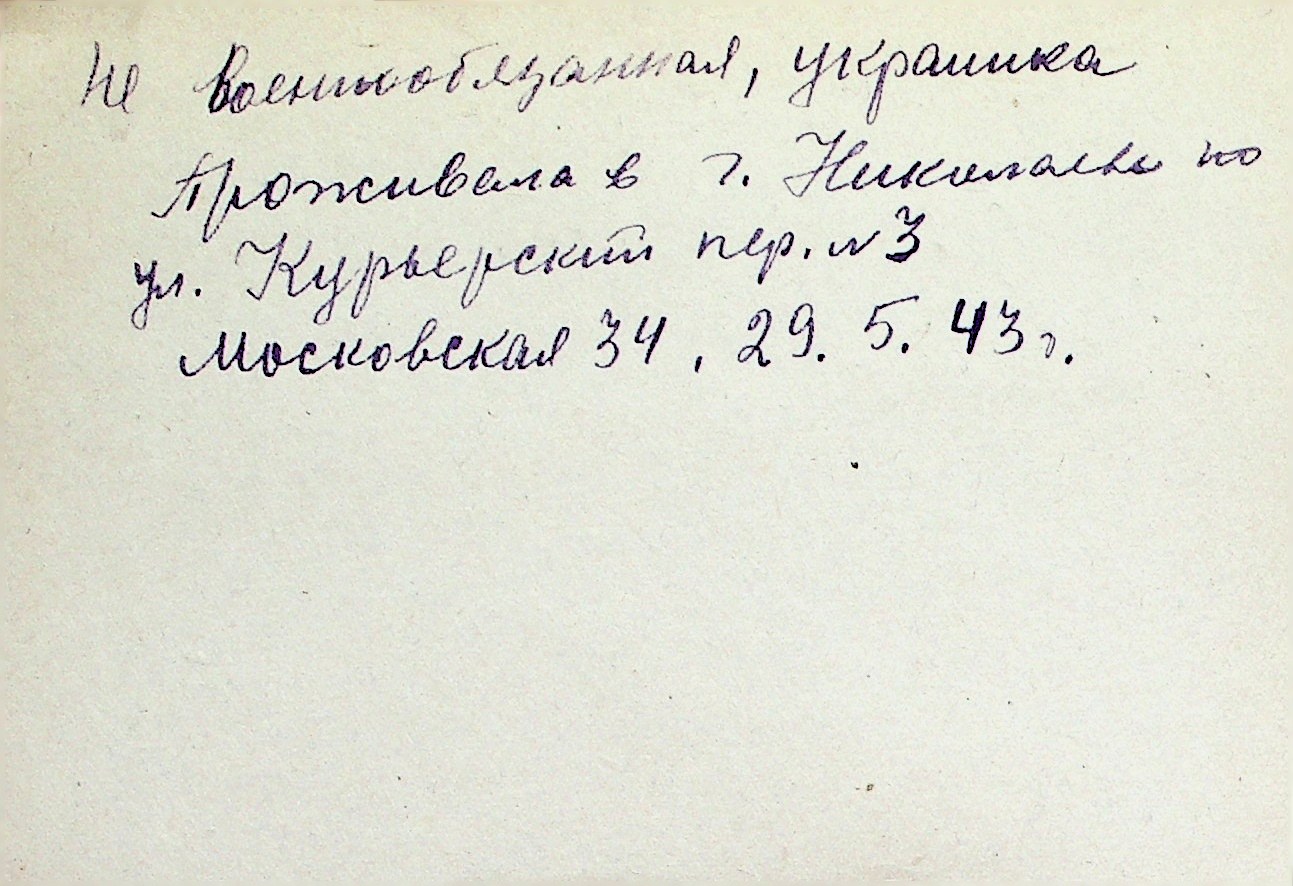 Не военнообязанная, украинка
Проживала в г. Николаеве по
ул. Курьерский пер. №3
Московская 34, 29. 5. 43 г.